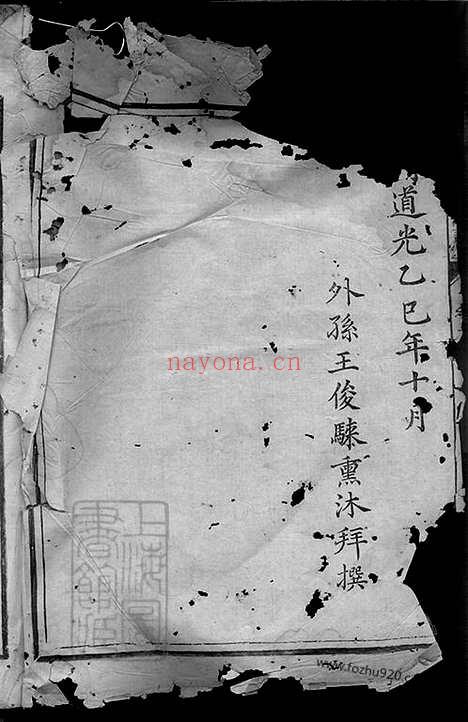 道光乙巳年十月
外孫王俊騋熏沐拜撰
nayona.cn
www.fozhu920.com